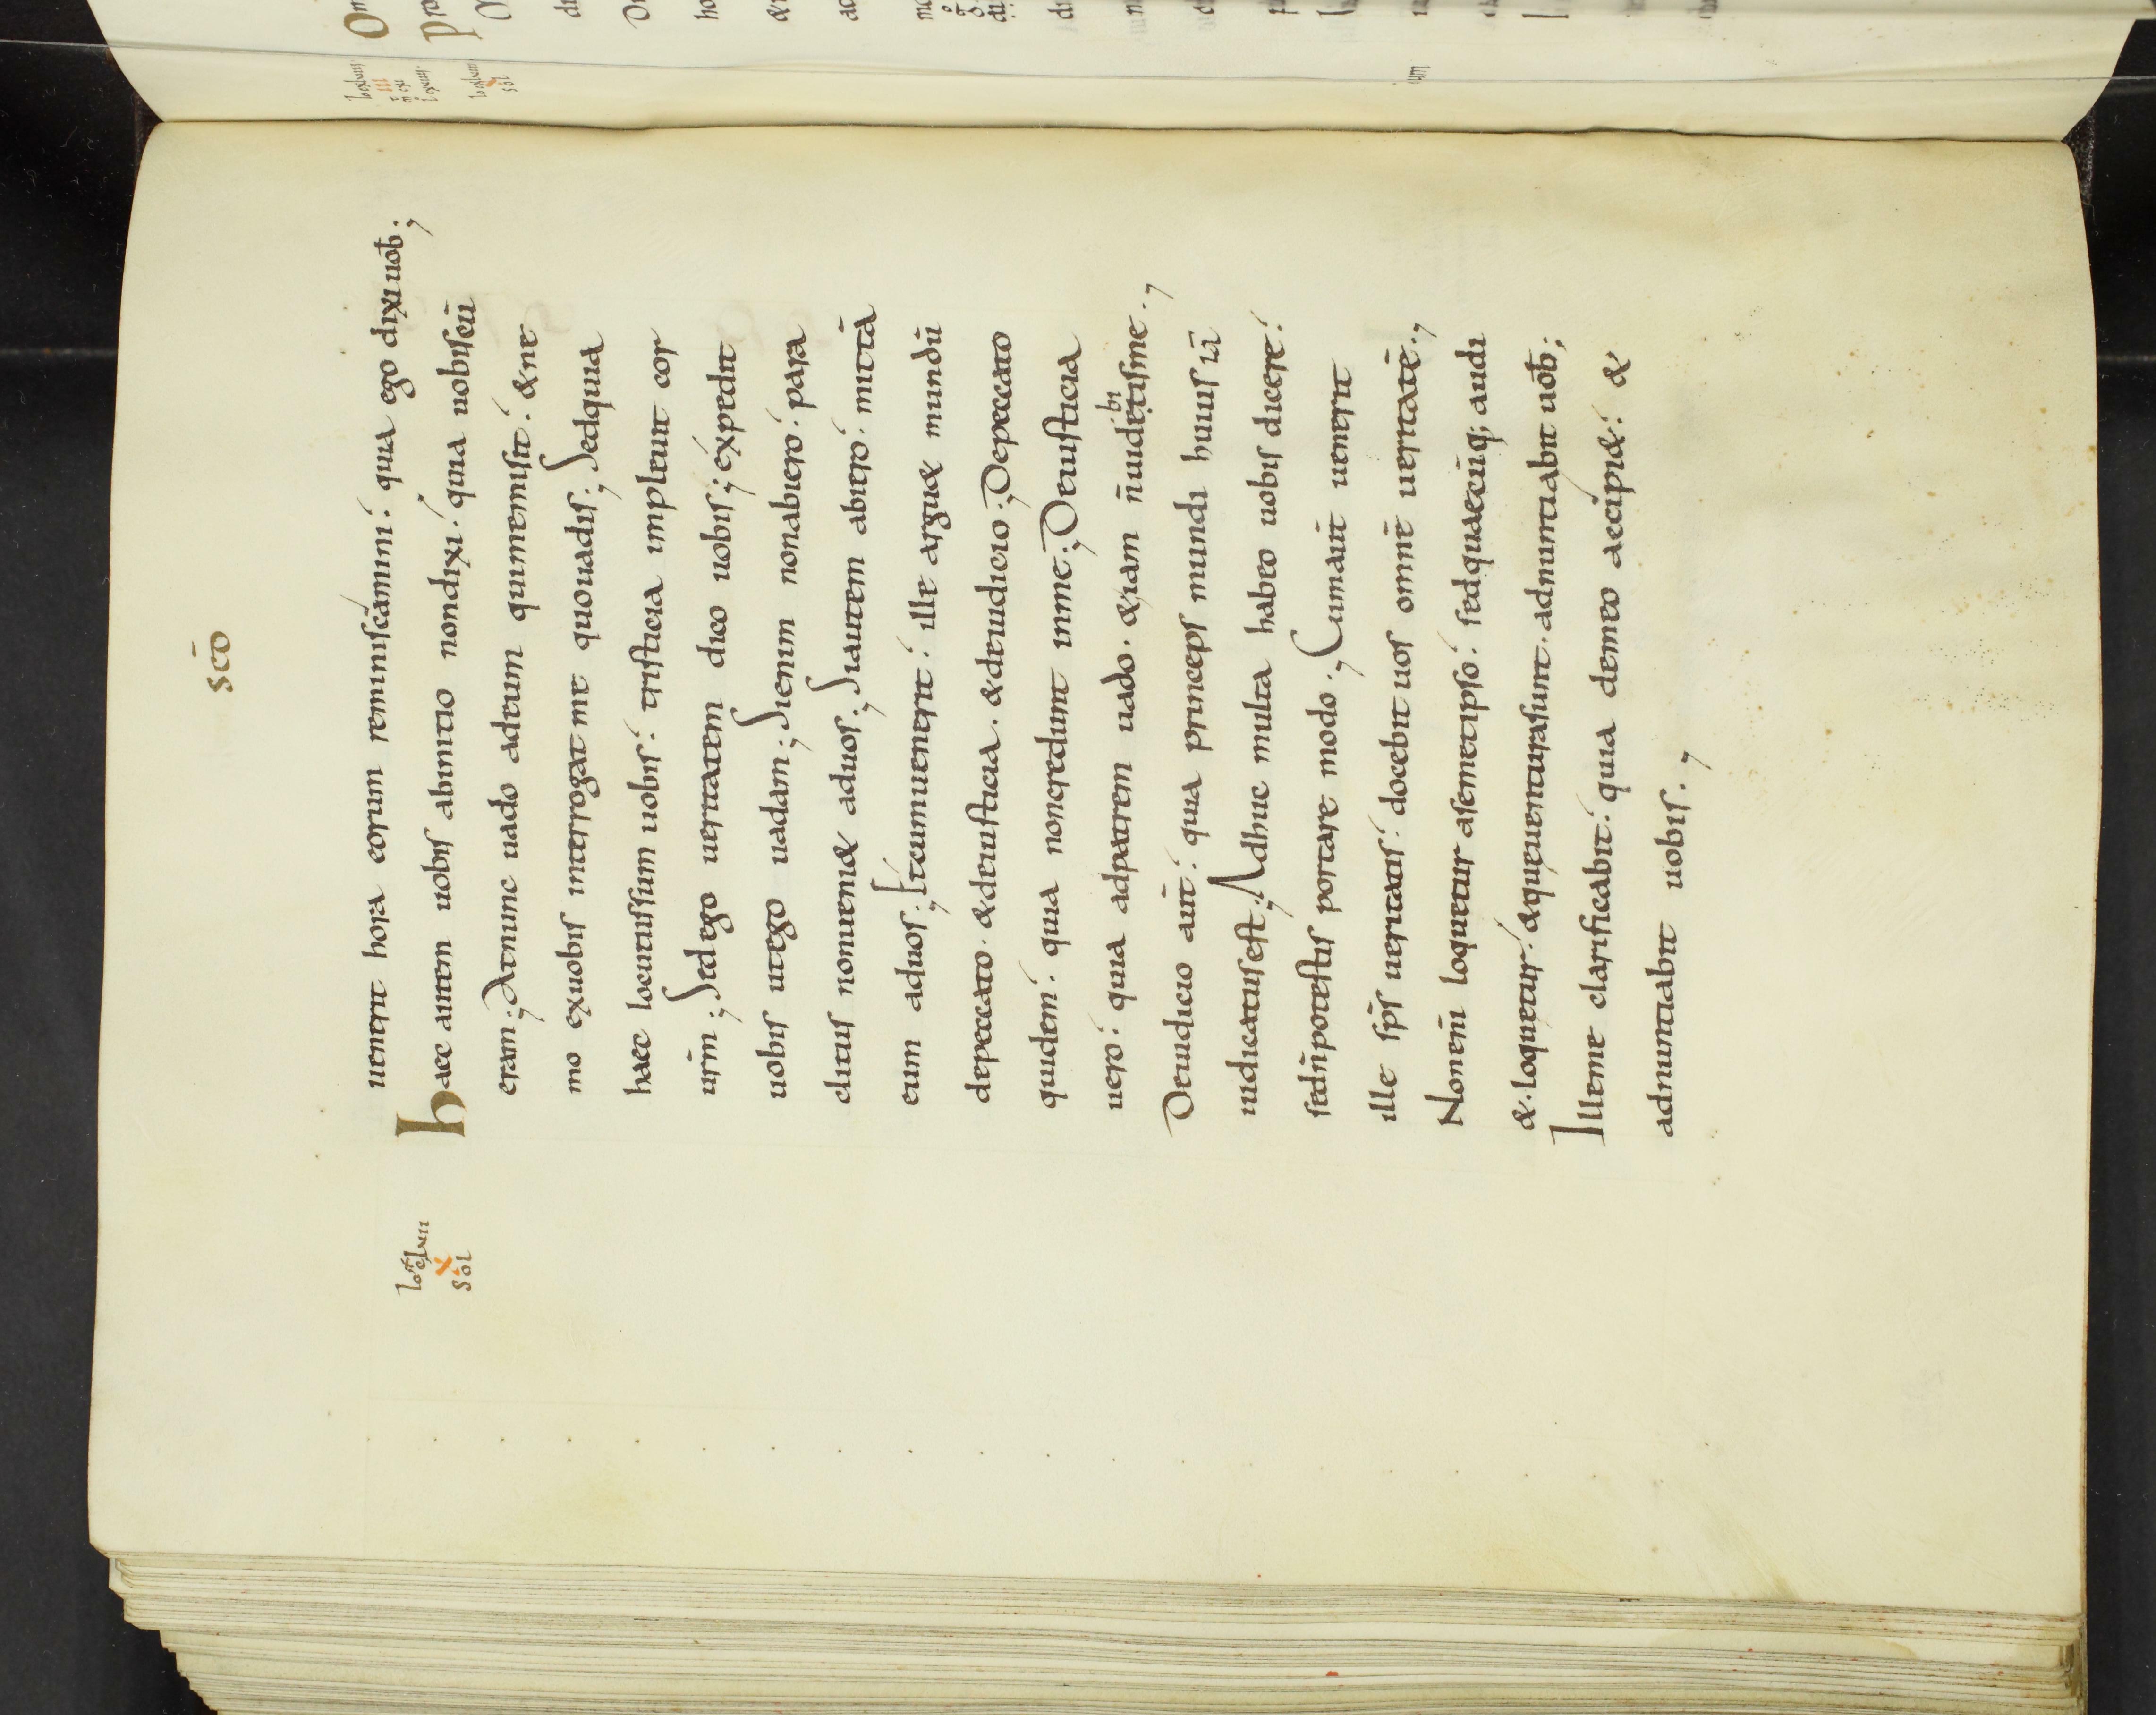 scō
uenerit hora eorum reminiscamini: quia ego dixi uob̄;
haec autem uobis abinitio nondixi: quia uobiscū
eram; Atnunc uado adeum quimemisit: & ne
mo exuobis interrogat me quouadis; Sedquia
haec locutussum uobis: tristicia impleuit cor
ur̄m; Sed ego ueritatem dico uobis; expedit
uobis utego uadam; Sienim nonabiero: para
clitus nonueni& aduos; Siautem abiero: mittā
eum aduos; Etcumuenerit: ille argu& mundū
depeccato. & deiusticia. & deiudicio; Depeccato
quidem: quia noncredunt inme; Deiusticia
uero: quia adpatrem uado. & iam n̄uidebitisme.,
Deiudicio aut̄: quia princeps mundi huius iā
iudicatusest; Adhuc multa habeo uobis dicere:
sedn̄potestis portare modo., Cumaut̄ uenerit
ille sp̄s ueritatis: docebit uos omnē ueritatē.,
Nonenī loquetur asemetipso: sedquaecūq; audi
&. loquetur: & queuenturasunt. adnuntiabit uob̄;
Illeme clarificabit: quia demeo accipi&: &
adnuntiabit uobis.,
X
sol